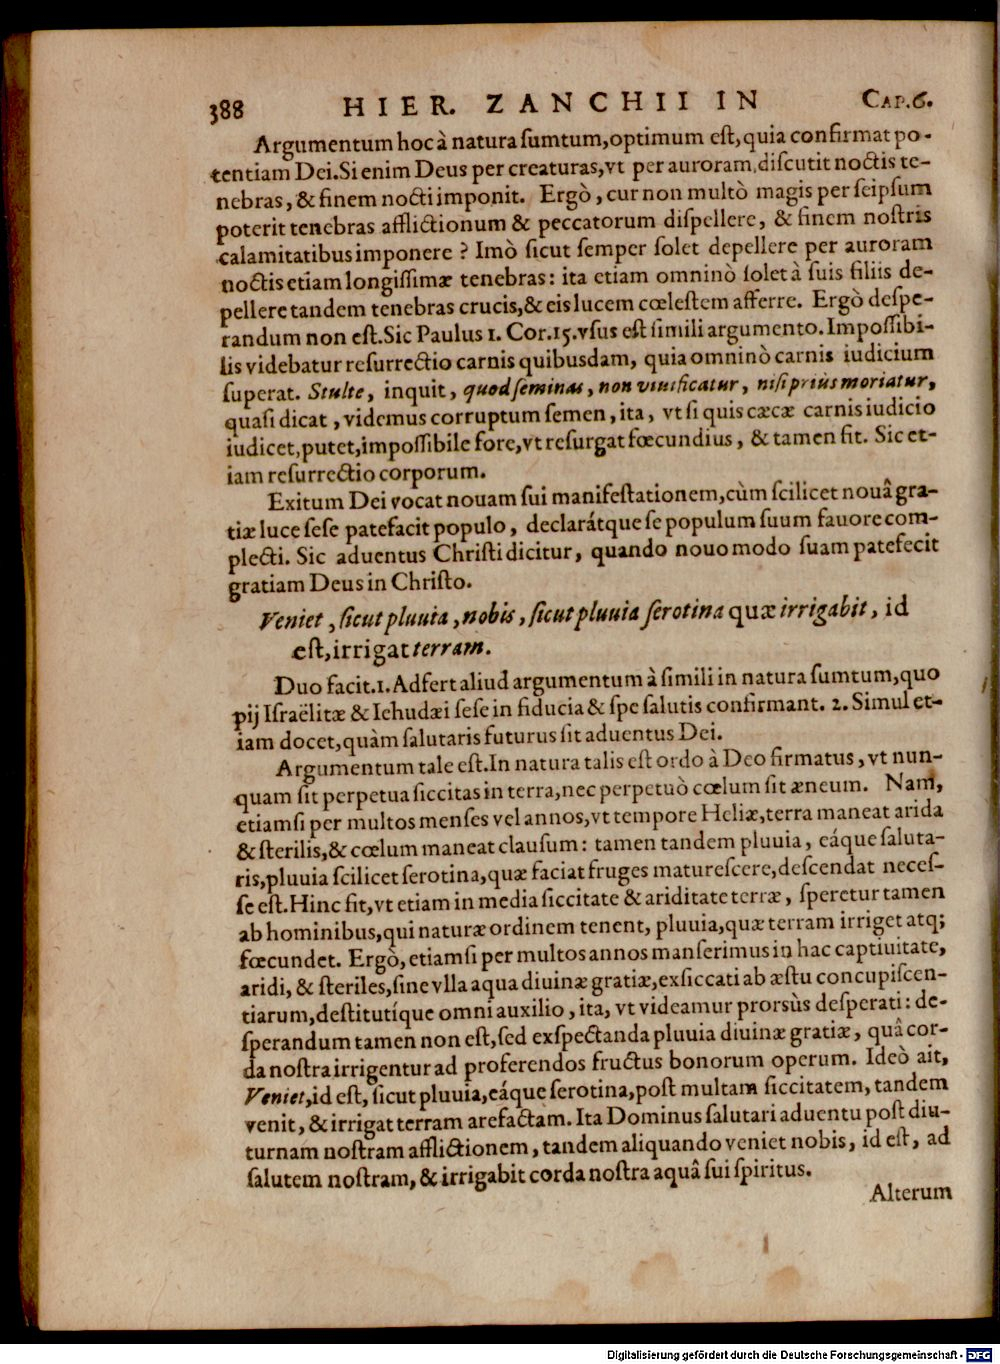 388 HIER. ZANCHII IN CAP.6.
Argumentum hoc à natura ſumtum,optimum eſt,quia confirmat po-
tentiam Dei.Si enim Deus per creaturas,vt per auroram,diſcutit noctis te-
nebras, & finem nocti imponit. Ergò, cur non multò magis per ſeipſum
poterit tenebras afflictionum & peccatorum diſpellere, & finem noſtris
calamitatibus imponere? Imò ſicut ſemper ſolet depellere per auroram
noctis etiam longiſſimæ tenebras: ita etiam omninò ſolet à ſuis filiis de-
pellere tandem tenebras crucis,& eis lucem cœleſtem afferre. Ergò deſpe-
randum non eſt.Sic Paulus 1. Cor.15.vſus eſt ſimili argumento.Impoſſibi-
lis videbatur reſurrectio carnis quibusdam, quia omninò carnis iudicium
ſuperat. Stulte, inquit, quod ſeminas, non viuificatur, niſi priùs moriatur,
quaſi dicat, videmus corruptum ſemen, ita, vt ſi quis cæcæ carnis iudicio
iudicet,putet,impoſſibile fore,vt reſurgat fœcundius, & tamen fit. Sic et-
iam reſurrectio corporum.
Exitum Dei vocat nouam ſui manifeſtationem,cùm ſcilicet nouâ gra-
tiæ luce ſeſe patefacit populo, declarátque ſe populum ſuum fauore com-
plecti. Sic aduentus Chriſti dicitur, quando nouo modo ſuam patefecit
gratiam Deus in Chriſto.
Veniet, ſicut pluuia, nobis, ſicut pluuia ſerotina quæ irrigabit, id
eſt,irrigat terram.
Duo facit.1.Adfert aliud argumentum à ſimili in natura ſumtum,quo
pij Iſraëlitæ & Iehudæi ſeſe in fiducia & ſpe ſalutis confirmant. 2. Simul et-
iam docet,quàm ſalutaris futurus ſit aduentus Dei.
Argumentum tale eſt.In natura talis eſt ordo à Deo firmatus, vt nun-
quam ſit perpetua ſiccitas in terra,nec perpetuò cœlum ſit æneum. Nam,
etiamſi per multos menſes vel annos,vt tempore Heliæ,terra maneat arida
& ſterilis,& cœlum maneat clauſum: tamen tandem pluuia, eáque ſaluta-
ris,pluuia ſcilicet ſerotina,quæ faciat fruges matureſcere,deſcendat neceſ-
ſe eſt.Hinc fit,vt etiam in media ſiccitate & ariditate terræ, ſperetur tamen
ab hominibus,qui naturæ ordinem tenent, pluuia,quæ terram irriget atq;
fœcundet. Ergò,etiamſi per multos annos manſerimus in hac captiuitate,
aridi, & ſteriles,ſine vlla aqua diuinæ gratiæ,exſiccati ab æſtu concupiſcen-
tiarum,deſtitutíque omni auxilio, ita, vt videamur prorsùs deſperati: de-
ſperandum tamen non eſt,ſed exſpectanda pluuia diuinæ gratiæ, quâ cor-
da noſtra irrigentur ad proferendos fructus bonorum operum. Ideò ait,
Veniet,id eſt, ſicut pluuia,eáque ſerotina,poſt multam ſiccitatem, tandem
venit, & irrigat terram arefactam. Ita Dominus ſalutari aduentu poſt diu-
turnam noſtram afflictionem, tandem aliquando veniet nobis, id eſt, ad
ſalutem noſtram, & irrigabit corda noſtra aquâ ſui ſpiritus.
Alterum
Digitalisierung gefördert durch die Deutsche Forschungsgemeinschaft - DFG